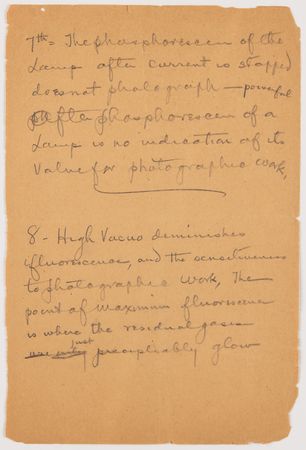 7th = The phosphorescen of the
Lamp after current is stopped
does not photograph — powerful
After phosphorescen of a
Lamp is no indication of its
Value for photographic work,
8 - High Vacuo deminishes
fluorescence, and the sensitiveness
to photographic work, The
point of maximum fluorescence
is where the residual gases
just perceptibly glow